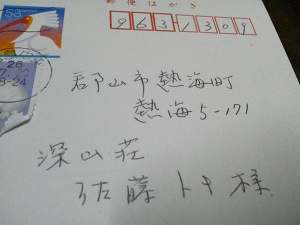 郵便はがき
50
963-1309
26
8-24
郡山市熱海町
熱海5-171
深山荘
佐藤トキ様